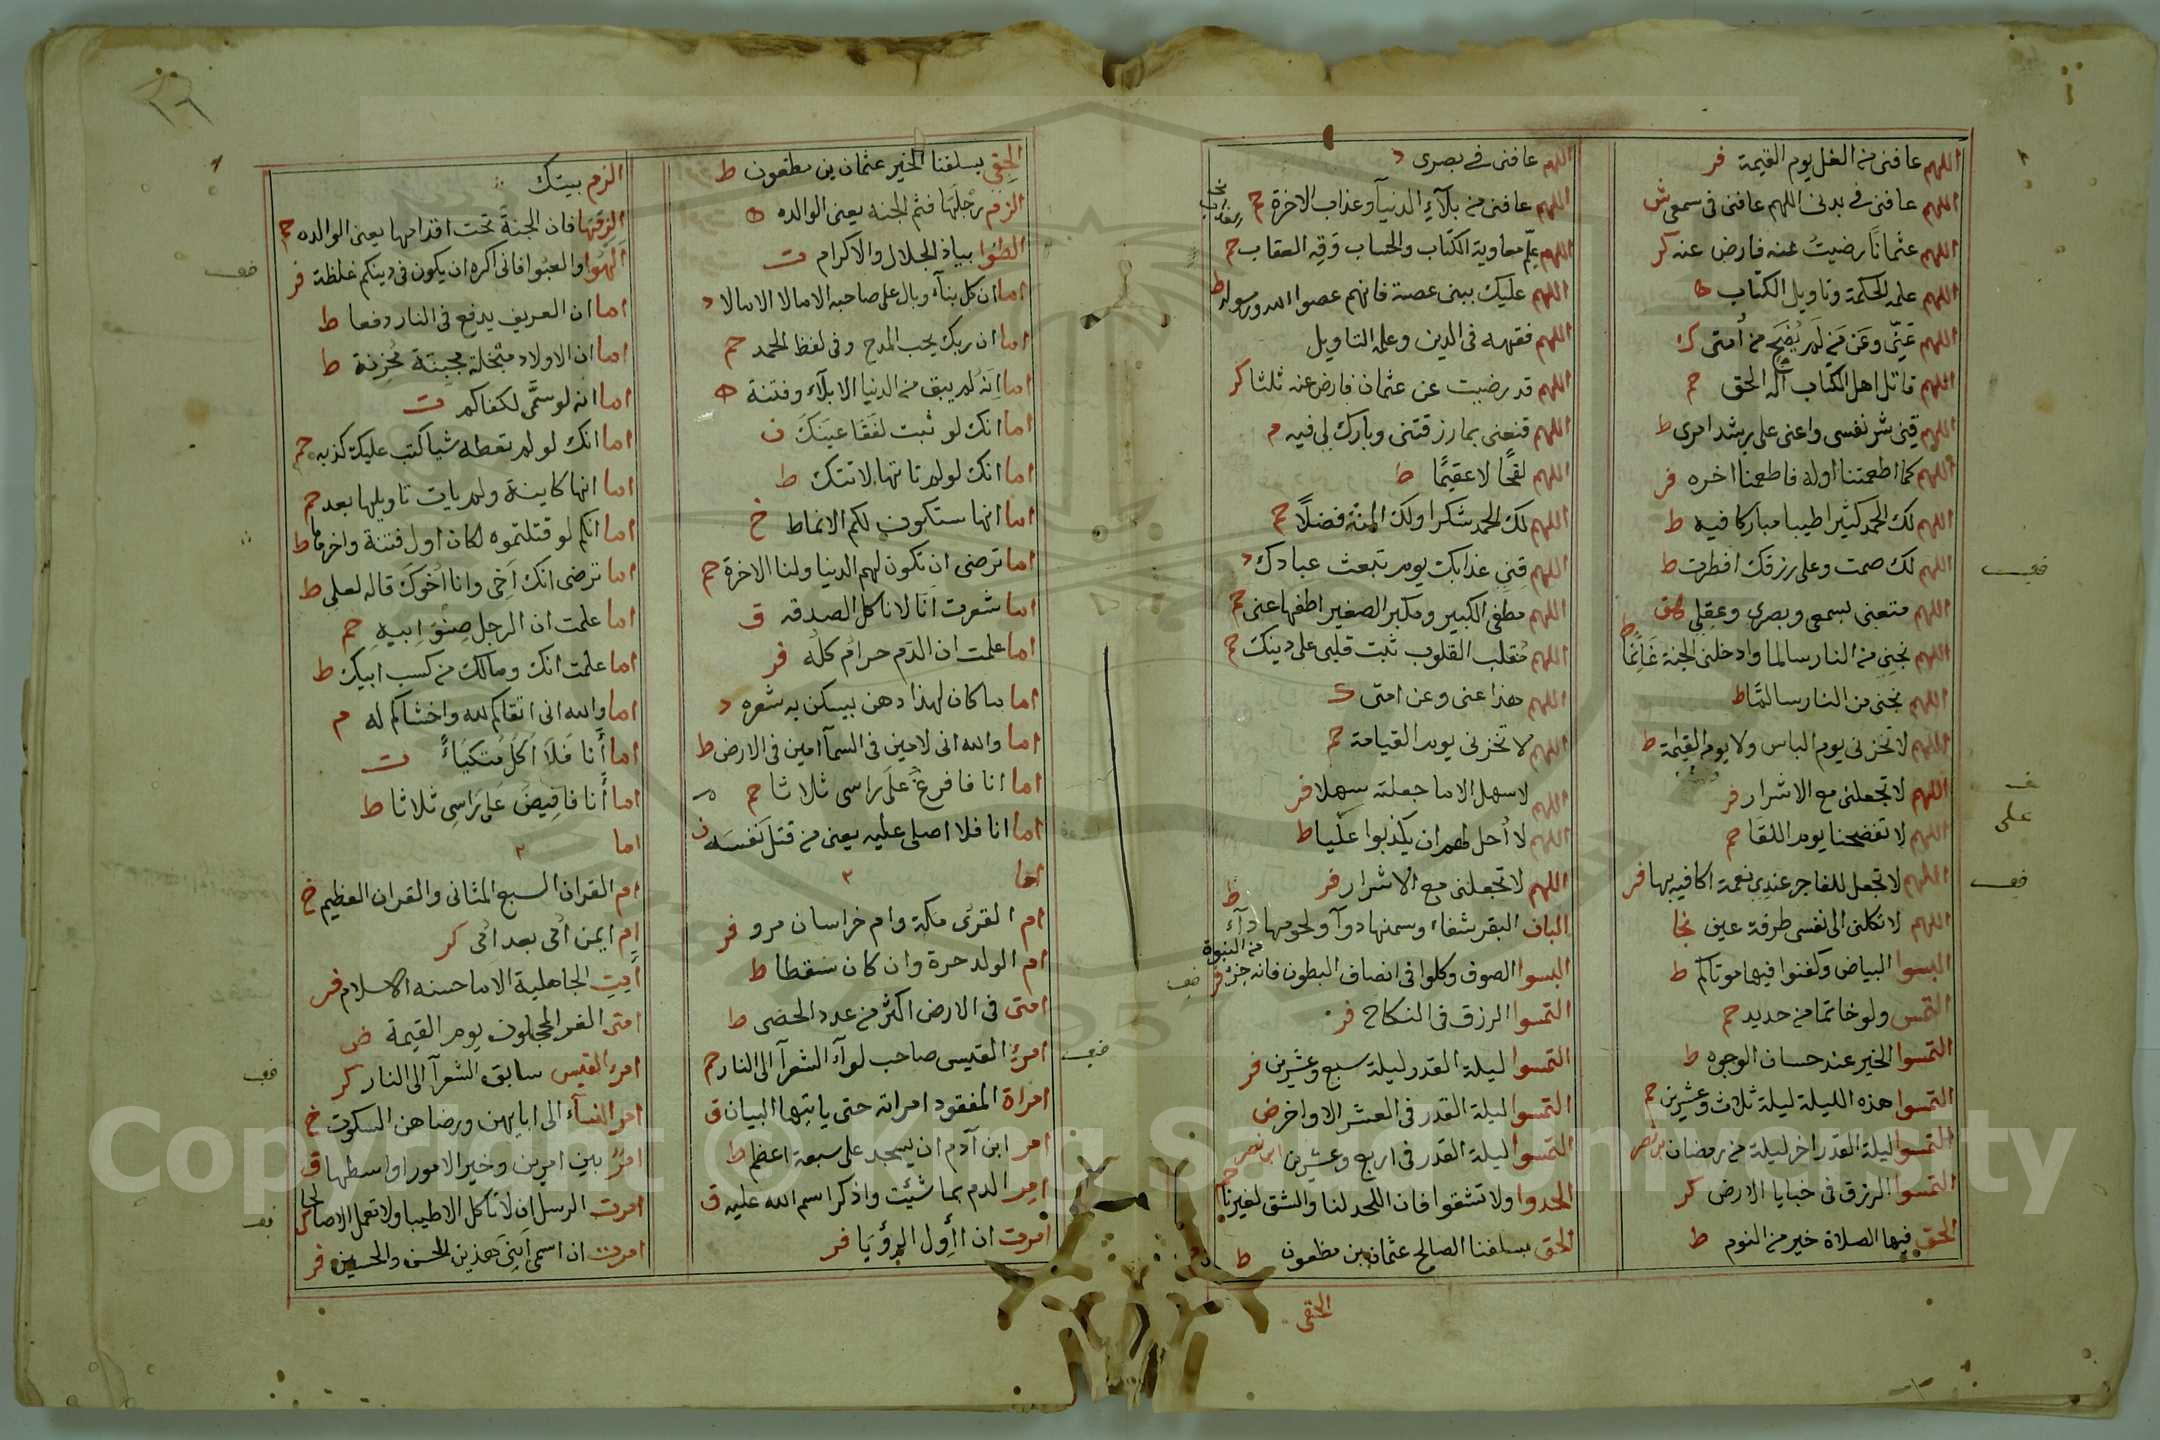 اللهم عافنى من الغل يوم القيمة فر
اللهم عافنى فى بدنى اللهم عافنى فى سمعى ش
اللهم عثمانا رضيت عنه فارض عنه كر
اللهم علمه الحكمة وتاويل الكتاب ه
اللهم عنى وعن من لم يضح من امتى ك
اللهم قاتل اهل الكتاب اله الحق حم
اللهم قنى شر نفسى واعنى على رشد امرى ط
اللهم كما اطعمتنا اوله فاطعمنا اخره فر
اللهم لك الحمد كثيرا طيبا مباركا فيه ط
اللهم لك صمت وعلى رزقك افطرت ط
اللهم متعنى بسمعى وبصرى وعقلى
اللهم نجنى من النار سالما وادخلنى الجنة غانما ط
اللهم نجنى من النار سالما ط
اللهم لا تخزنى يوم الباس ولا يوم القيمة ط
اللهم لا تجعلنى مع الاشرار فر
اللهم لا تفضحنا يوم اللقا حم
اللهم لا تجعل للفاجر عندى نعمة اكافيه بها فر
اللهم لا تكلنى الى نفسى طرفة عين نجا
البسوا البياض وكفنوا فيها موتاكم ط
التمس ولو خاتما من حديد حم
التمسوا الخير عند حسان الوجوه ط
التمسوا هذه الليلة ليلة ثلاث وعشرين حم
التمسوا ليلة القدر اخر ليلة من رمضان ابن نصر
التمسوا الرزق فى خبايا الارض كر
الحق فيها الصلاة خير من النوم ط
اللهم عافنى فى بصرى د
اللهم عافنى من بلاء الدنيا وعذاب الاخرة حم
اللهم علم معاوية الكتاب والحساب وقه العقاب حم
اللهم عليك ببنى عصية فانهم عصوا الله ورسوله ط
اللهم فقهه فى الدين وعلمه التاويل
اللهم قد رضيت عن عثمان فارض عنه ثلثا كر
اللهم قنعنى بما رزقتنى وبارك لى فيه م
اللهم لقحا لا عقيما ط
اللهم لك الحمد شكرا ولك المنة فضلا حم
اللهم قنى عذابك يوم تبعث عبادك د
اللهم مطفى الكبير ومكبر الصغير اطفها عنى حم
اللهم مقلب القلوب ثبت قلبى على دينك حم
اللهم هذا عنى وعن امتى ك
اللهم لا تخزنى يوم القيامة حم
اللهم لا سهل الا ما جعلته سهلا فر
اللهم لا احل لهم ان يكذبوا عليا ط
اللهم لا تجعلنى مع الاشرار فر
البان البقر شفاء وسمنها دوآ ولحومها دآء ط
البسوا الصوف وكلوا فى انصاف البطون فانه جزء من النبوة فر
التمسوا الرزق فى النكاح فر
التمسوا ليلة القدر ليلة سبع وعشرين فر
التمسوا ليلة القدر فى العشر الاواخر ض
التمسوا ليلة القدر فى اربع وعشرين ابن نصر
الحدوا ولا تشقوا فان اللحد لنا والشق لغيرنا حم
الحق بسلفنا الصالح عثمان بن مظعون ط
الحقى
الحقى بسلفنا الخير عثمان بن مظعون ط
الزم رجلها فثم الجنة يعنى الوالده ه
الظوا بياذ الجلال والاكرام ت
اما ان كل بنآء وبال على صاحبه الا مالا الا مالا د
اما ان ربك يحب المدح وفى لفظ الحمد حم
اما انه لم يبق من الدنيا الا بلآء وفتنة ه
اما انك لو ثبت لفقا عينك ن
اما انك لو لم تاتها لاتتك ط
اما انها ستكون لكم الانماط خ
اما ترضى ان تكون لهم الدنيا ولنا الاخرة حم
اما شعرت انا لا ناكل الصدقه ق
اما علمت ان الدم حرام كله فر
اما ما كان لهذا دهن يسكن به شعره د
اما والله انى لامين فى السمآ امين فى الارض ط
اما انا فافرغ على راسى ثلاثا حم
اما انا فلا اصلى عليه يعنى من قتل نفسه ن
اما ٢
ام القرى مكة وام خراسان مرو فر
ام الولد حرة وان كان سقطا ط
امتى فى الارض اكثر من عدد الحصى ط
امرؤ القيس صاحب لوآء الشعرآ الى النار حم
امراة المفقود امراته حتى ياتيها البيان ق
امر ابن آدم ان يسجد على سبعة اعظم ط
امر الدم بما شئت واذكر اسم الله عليه ق
امرت ان ااول الرؤيا فر
الزم بيتك
الزمها فان الجنة تحت اقدامها يعنى الوالده حم
الهوا والعبوا فانى اكره ان يكون فى دينكم غلظة فر
اما ان العريف يدفع فى النار دفعا ط
اما ان الاولاد مبخلة مجبنة محزنة ط
اما انه لو سمى لكفاكم ت
اما انك لو لم تعطه شيا كتب عليك كذبه حم
اما انها كاينة ولم يات تاويلها بعد حم
اما انكم لو قتلتموه لكان اول فتنة واخرها ط
اما ترضى انك اخى وانا اخوك قاله لعلى ط
اما علمت ان الرجل صنو ابيه حم
اما علمت انك ومالك من كسب ابيك ط
اما والله انى اتقاكم لله واخشاكم له م
اما انا فلا اكل متكياً ت
اما انا فافيض على راسى ثلاثا ط
اما ٢
ام القران السبع المثانى والقران العظيم خ
ام ايمن امى بعد امى كر
اميت الجاهلية الا ما حسنه الاسلام فر
امتى الغر المحجلون يوم القيمة ض
امرء القيس سابق الشعرآ الى النار كر
امر النسآء الى ابايهن ورضاهن السكوت خ
امر بين امرين وخير الامور اواسطها ق
امرت الرسل ان لا تاكل الا طيبا ولا تعمل الا صالحا
امرت ان اسمى ابنى هذين الحسن والحسين فر
Copyright © King Saud University
1957